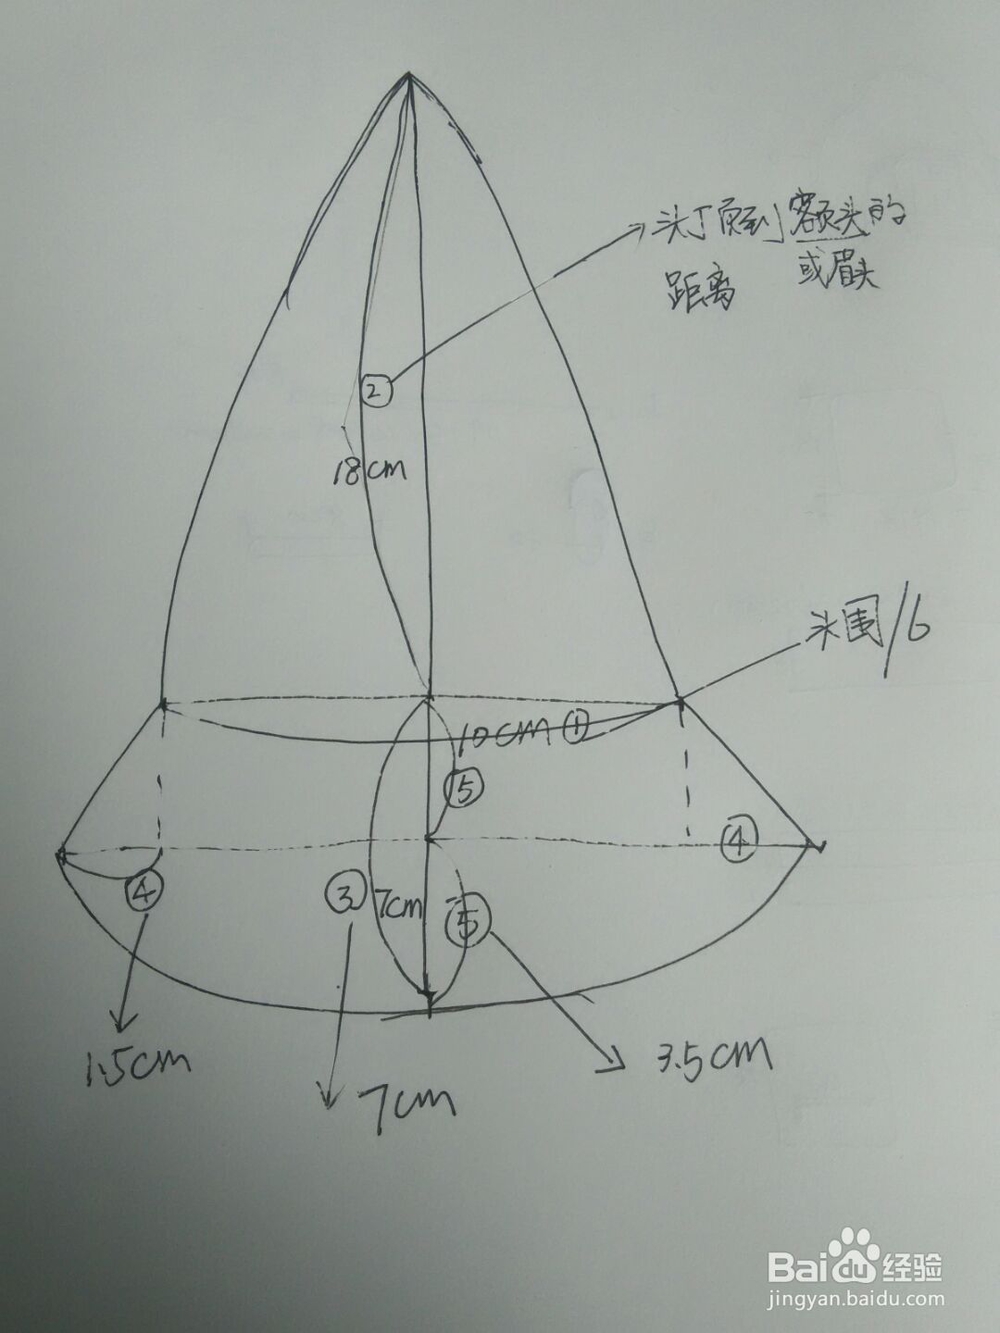 头顶到额头的
距离 或眉头
②
18cm
头围/6
10cm ①
⑤
④
④
③ 7cm
⑤
1.5cm
3.5cm
7cm
Baidu经验
jingyan.baidu.com